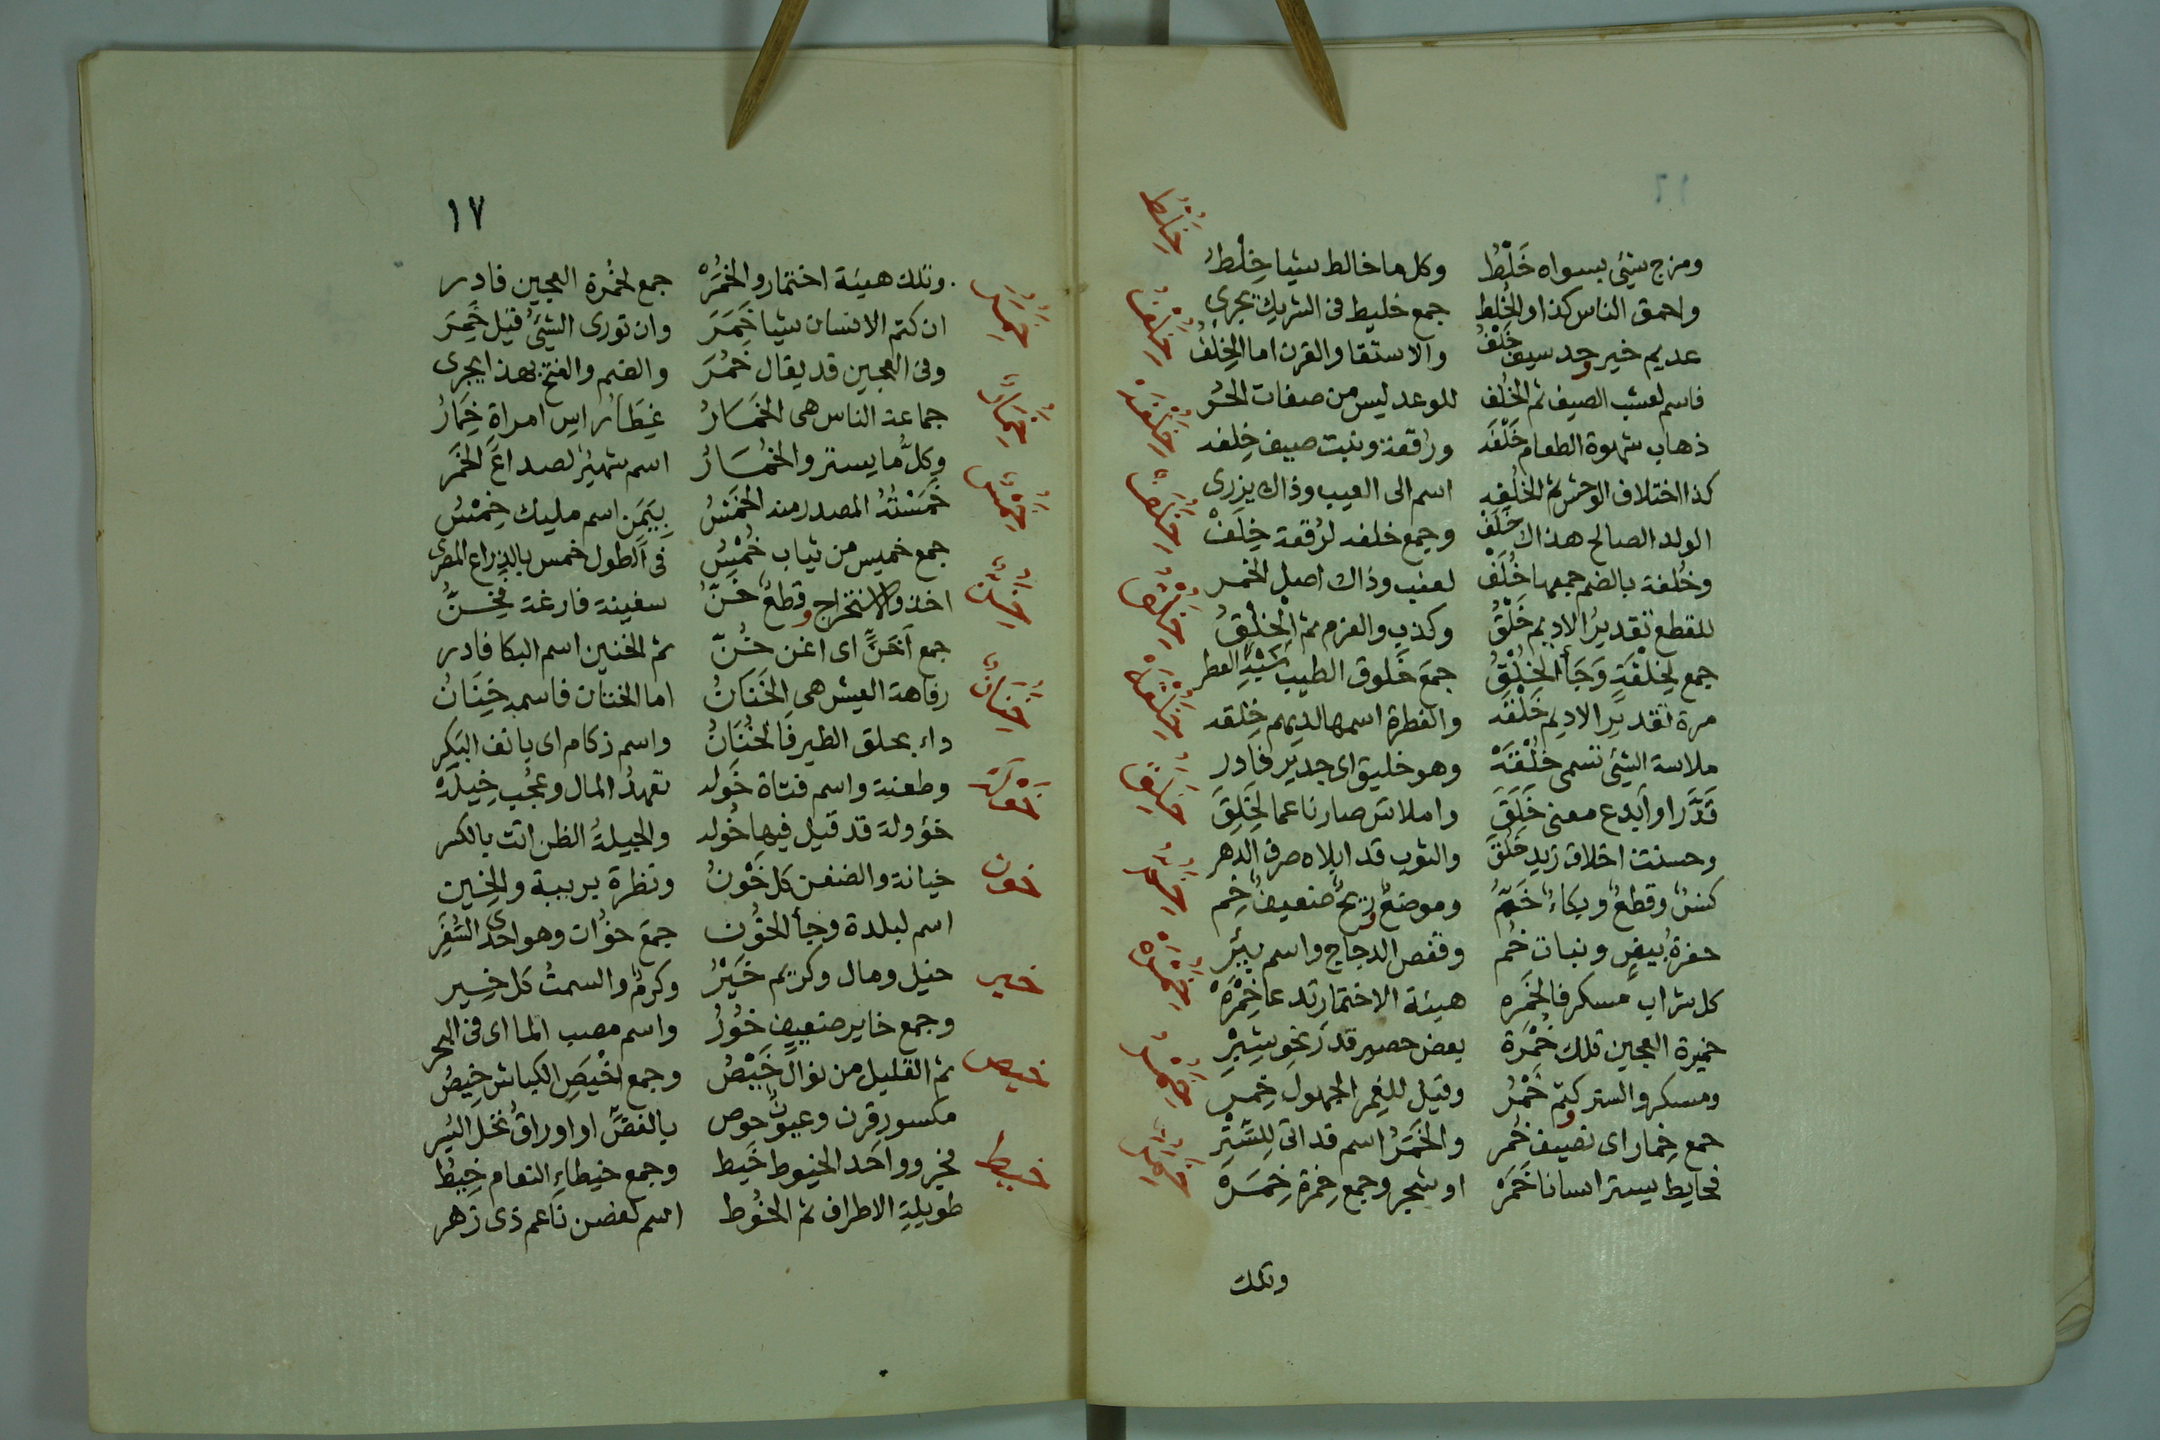 ١٦
ومزج شئ بسواه خَلْطُ وكل ما خالط شيا خِلْطُ خلط
واحمق الناس كذا والخُلط جمع خليط فى الشريك يجرى
عديم خير وحد سيف خَلْفُ والاستقا والقرن اما الخِلفُ خلف
فاسم لعشب الصيف ثم الخُلف للوعد ليس من صفات الحُر
ذهاب شهوة الطعام خَلْفَه ورقعة ونبت صيف خِلفه خلفة
كذا اختلاف الوحش ثم الخُلفه اسم الى العيب وذاك يزرى
الولد الصالح هذاك خَلَفْ وجمع خلفه لرُقعة خِلَفْ خلف
وخُلفة بالضم جمعها خُلَفْ لعنب وذاك اصل الخمر
للقطع تقديرُ الاديم خَلْقُ وكذبٍ والعزم ثم الخِلْقُ خلق
جمع لخِلقَةٍ وَجَأ الخُلْقُ جمعَ خَلوق الطيب العطر
مرة تقدير الاديم خَلْقَه والفطرة اسمها لديهم خِلقه خلقة
ملاسة الشئ تسمى خُلْقَهْ وهو خليق اى جدير فادرَ
قَدَّرَ او اَبدع معنى خَلَقَ واملاسّ صار ناعما خَلِقَ خلق
وحسنت اخلاق زيدٍ خَلُقَ والثوب قد ابلاه صرف الدهر
كنسٌ وقطعٌ وبكاءٌ خَمُّ وموضعٌ وريحٌ ضعيفٌ خِم خم
حفرةُ بيضٍ ونبات خُم وقفص الدجاج واسم بئر
كل شراب مسكر فالخَمره هيئة الاختمار تدعا خِمْرَهْ خمره
خميرة العجين تلك خُمْرَة بعض حصير قدر نحو شِبْرِ
ومسكر والستر كتم خَمْرُ وقيل للغِمر الجهول خِمر خمر
جمع خِمار اى نصيف خُمر والخَمَرُ اسم قد اتى للسَّتْرِ
فحايط يستر اسانا خَمَرَه او شجر وجمع خِمرة خِمَرَهْ خمر
وتلك
١٧
وتلك هيئة اختمار والخُمَرُهْ جمع لخُمرة العجين فادر خمر
ان كتم الانسان شيا خَمَرَ وان تورى الشئُ قيل خَمِرَ
وفى العجين قد يقال خَمُرَ والضم والفتح بهذا يجرى
جماعة الناس هى الخَمَارُ غِطَاُ راس امراة خِمَارُ خمار
وكلُّ ما يستر والخُمَارُ اسم شهير لصداعَ الخَمْر
خَمَسْتُهُ المصدر منه الخَمْسُ بِيَمَنٍ اسم مليك خِمْسُ خمس
جمع خميس من ثياب خُمْسُ فى الطول خمس بالذراع المصرى
اخذ والاستخراج وقطعٌ خَنُّ سفينة فارغة فخِنُّ خن
جمع اَخَنٍّ اى اغن خُنّ ثم الخنين اسم البكا فادر
رفاهة العيش هى الخَنَانُ اما الختان فاسمه خِنَانُ خنان
داء بحلق الطير فالخُنَانُ واسم زكام اى بانف البَكرِ
وطعنة واسم فتاة خَوله تعهدُ المال وعُجُبٌ خِيلَهْ خوله
خؤولة قد قيل فيها خُوله والخِيلةُ الظن اتت بالكسر
خيانة والضعف كل خَوْنُ ونظرة بريبة والخِين خون
اسم لبلدة وجأ الخُون جمعَ خِوُان وهو احدى السُّفَرِ
خيل ومال وكريم خَيْرُ وكرمٌ والسمتُ كل خِير خير
وجمع خاير ضعيفٍ خُورُ واسم مصب الما اى فى البحر
ثم القليل من نوال خَيْصُ وجمع لخْيَصِ الكباش خِيصُ خيص
مكسور قرن وعيونٌ خوص بالغضِّ او اوراق نخل اليُسر
فخير وواحد الخيوط خَيط وجمع خيطاءِ النعام خِيطُ خيط
طويلةِ الاطراف ثم الخُوط اسم لغصن ناعم ذى زهر